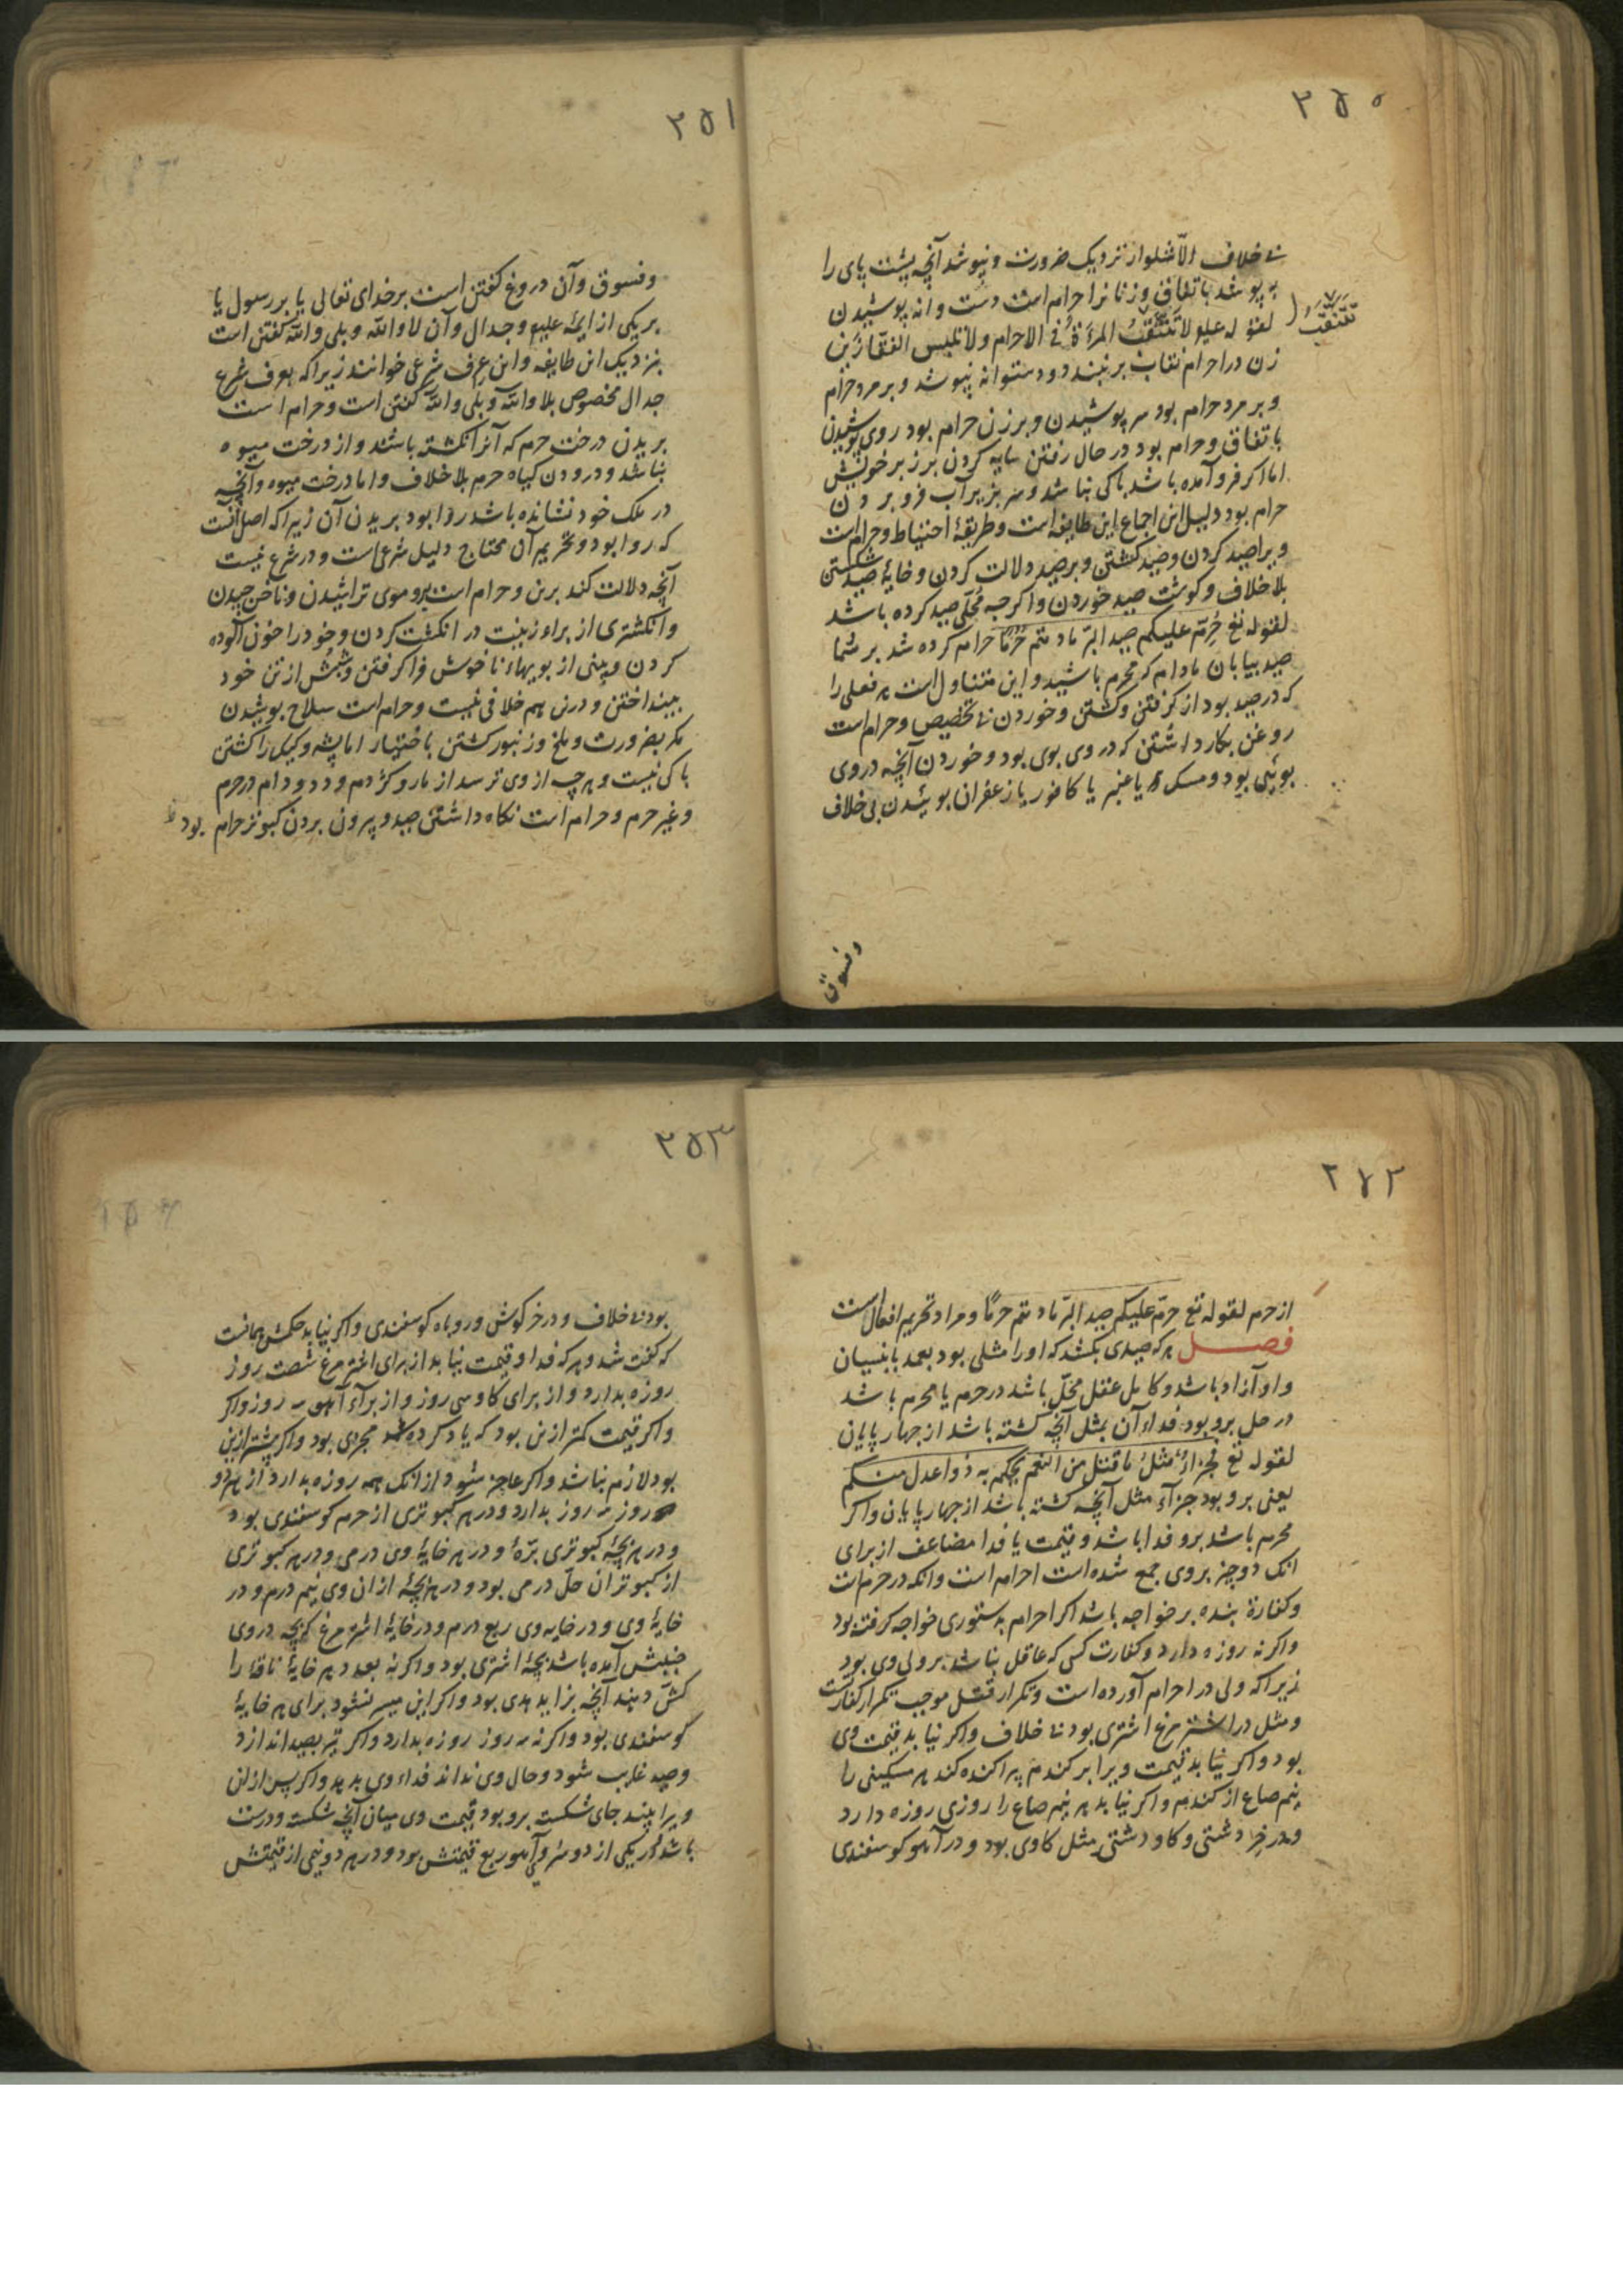 ۲۵۰
بی خلاف الا شلوار نزدیک ضرورت و نپوشد آنچه پشت پای را
بپوشد باتفاق و زنانرا حرامست دست وانه پوشیدن
لقوله علیه لا تتنقب المرأة فی الاحرام ولا تلبس القفازین
تتنقب
زن در احرام نقاب برنبندد و دستوانه نپوشد و بر مرد حرام
و بر مرد حرام بود سر پوشیدن و بر زن حرام بود روی پوشیدن
باتفاق و حرام بود در حال رفتن سایه کردن برزبر خویش
اما اکر فرو آمده باشد باکی نباشد و سر بزیر آب فرو بردن
حرام بود دلیل این اجماع این طایفه است و طریقهٔ احتیاط و حرام است
ویرا صید کردن و صید کشتن و بر صید دلالت کردن و خایهٔ صید شکستن
بلا خلاف و کوشت صید خوردن و اکرچه مُحلّی صید کرده باشد
لقوله تع حُرّم علیکم صید البرّ ما دمتم حُرُمًا حرام کرده شد بر شما
صید بیابان مادام که محرم باشید و این متناول است هر فعلی را
که در صید بود از کرفتن و کشتن و خوردن بی تخصیص و حرام است
روغن بکار داشتن که در وی بوی بود و خوردن آنچه در وی
بویی بود و مسک یا عنبر یا کافور یا زعفران بوئیدن بی خلاف
وفسوق
۲۵۱
وفسوق و آن دروغ کفتن است بر خدای تعالی یا بر رسول یا
بر یکی از ایمه علیهم و جدال و آن لا والله و بلی والله کفتن است
بنزدیک این طایفه و این عرف شرعی خوانند زیرا که بعرف شرع
جدال مخصوص بلا والله و بلی والله کفتن است و حرام است
بریدن درخت حرم که آنرا نکشته باشند و از درخت میوه
نباشد و درودن کیاه حرم بلا خلاف و اما درخت میوه و آنچه
در ملک خود نشانده باشد روا بود بریدن آن زیرا که اصل آنست
که روا بود و تحریم آن محتاج دلیل شرعی است و در شرع نیست
آنچه دلالت کند برین و حرام است برو موی تراشیدن و ناخن چیدن
و انکشتری از براء زینت در انکشت کردن و خود را خون آلوده
کردن و بینی از بویهاء ناخوش فرا کرفتن و شپش از تن خود
بینداختن و درین هم خلافی نیست و حرام است سلاح پوشیدن
مکر بضرورت و ملخ و زنبور کشتن باختیار اما پشه و کیک را کشتن
باکی نیست و هرچه از وی ترسد از مار و کژدم و دد و دام در حرم
و غیر حرم و حرام است نکاه داشتن صید و بیرون بردن کبوتر حرام بود
۲۵۲
از حرم لقوله تع حرّم علیکم صید البرّ ما دمتم حرمًا و مراد تحریم افعال است
فصل هر که صیدی بکشد که او را مثلی بود بعمد یا بنسیان
و او آزاد باشد و کامل عقل محلّ باشد در حرم یا محرم باشد
در حل برو بود فداء آن بمثل آنچه کشته باشد از چهارپایان
لقوله تع فجزاءٌ مثلُ ما قتل من النعم یحکم به ذوا عدل منکم
یعنی برو بود جزآء مثل آنچه کشته باشد از چهارپایان و اکر
محرم باشد برو فدا باشد و قیمت یا فدا مضاعف از برای
انک دو چیز بروی جمع شده است احرام است و انکه در حرم است
و کفارهٔ بنده بر خواجه باشد اکر احرام بدستوری خواجه کرفته بود
و اکرنه روزه دارد و کفارت کسی که عاقل نباشد بر ولی وی بود
زیرا که ولی در احرام آورده است و تکرار قتل موجب تکرار کفارتست
و مثل در اشتر مرغ اشتری بود بی خلاف و اکر نیابد قیمت وی
بود و اکر نیابد قیمت ویرا بر کندم پراکنده کند هر مسکینی را
نیم صاع از کندم و اکر نیابد هر نیم صاع را روزی روزه دارد
و در خر دشتی و کاو دشتی مثل کاوی بود و در آهو کوسفندی
۲۵۳
بود بی خلاف و در خرکوش و روباه کوسفندی و اکر نیابد حکمش همانست
که کفت شد و هر که فدا و قیمت نیابد از برای اشتر مرغ شصت روز
روزه بدارد و از برای کاو سی روز و از برآء آهو سه روز و اکر
و اکر قیمت کمتر ازین بود که یاد کرده شد مجزی بود و اکر بیشتر ازین
بود لازم نباشد و اکر عاجز شود از انک همه روزه بدارد از هر ده
روز سه روز بدارد و در هر کبوتری از حرم کوسفندی بود
و در هر بچهٔ کبوتری برّهٔ و در هر خایهٔ وی درمی و در هر کبوتری
از کبوتران حلّ درمی بود و در هر بچهٔ ازان وی نیم درم و در
خایهٔ وی و در خایه وی ربع درم و در خایهٔ اشتر مرغ کر بچه در وی
جنبش آمده باشد بچهٔ اشتری بود و اکرنه بعدد هر خایهٔ ناقهٔ را
کشن دهند آنچه بزاید هدی بود و اکر این میسر نشود برای هر خایهٔ
کوسفندی بود و اکرنه سه روز روزه بدارد و اکر تیر بصید اندازد
و صید غایب شود و حال وی نداند فداء وی بدهد و اکر پس ازان
ویرا بیند جای شکسته برو بود قیمت وی میان آنچه شکسته و درست
باشد و در یکی از دو سروی آهو ربع قیمتش بود و در هر دو نیمی از قیمتش